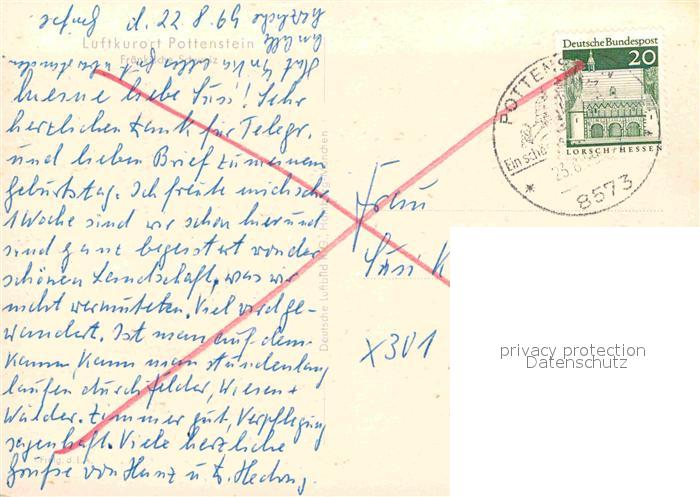 d. 22.8.69
Luftkurort Pottenstein
Fränkische Schweiz
meine liebe Susi! Sehr
herzlichen Dank für Telegr.
und lieben Brief zu meinem
Geburtstag. Ich freute mich sehr
1 Woche sind wir schon hier und
sind ganz begeistert von der
schönen Landschaft, was wir
nicht vermuteten. Viel wird ge-
wandert. Ist man auf dem
Kamm, kann man stundenlang
laufen durch Felder, Wiesen +
Wälder. Zimmer gut, Verpflegung
sagenhaft. Viele herzliche
Grüße von Heinz u. D. Hedwig.
Deutsche Luftbild
Frau
Susi K
x301
Deutsche Bundespost
20
LORSCH/HESSEN
POTTENS
8573
privacy protection
Datenschutz